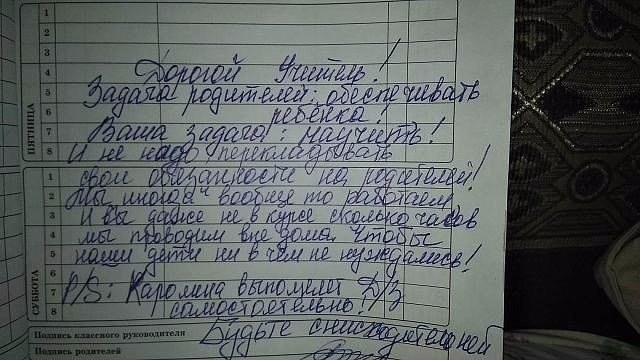 1
2
3
4
Дорогой Учитель!
5
Задача родителей: обеспечивать
6
ребёнка!
7
Ваша задача: научить!
8
И не надо перекладывать
ПЯТНИЦА
1
свои обязанности на родителей!
2
Мы иногда вообще то работаем
3
И вы даже не в курсе сколько часов
4
мы проводим вне дома. Чтобы
5
наши дети ни в чём не нуждались!
6
7
P/S: Каромина выполняет Д/З
8
самостоятельно!
СУББОТА
Будьте снисходительней
Подпись классного руководителя
Подпись родителей